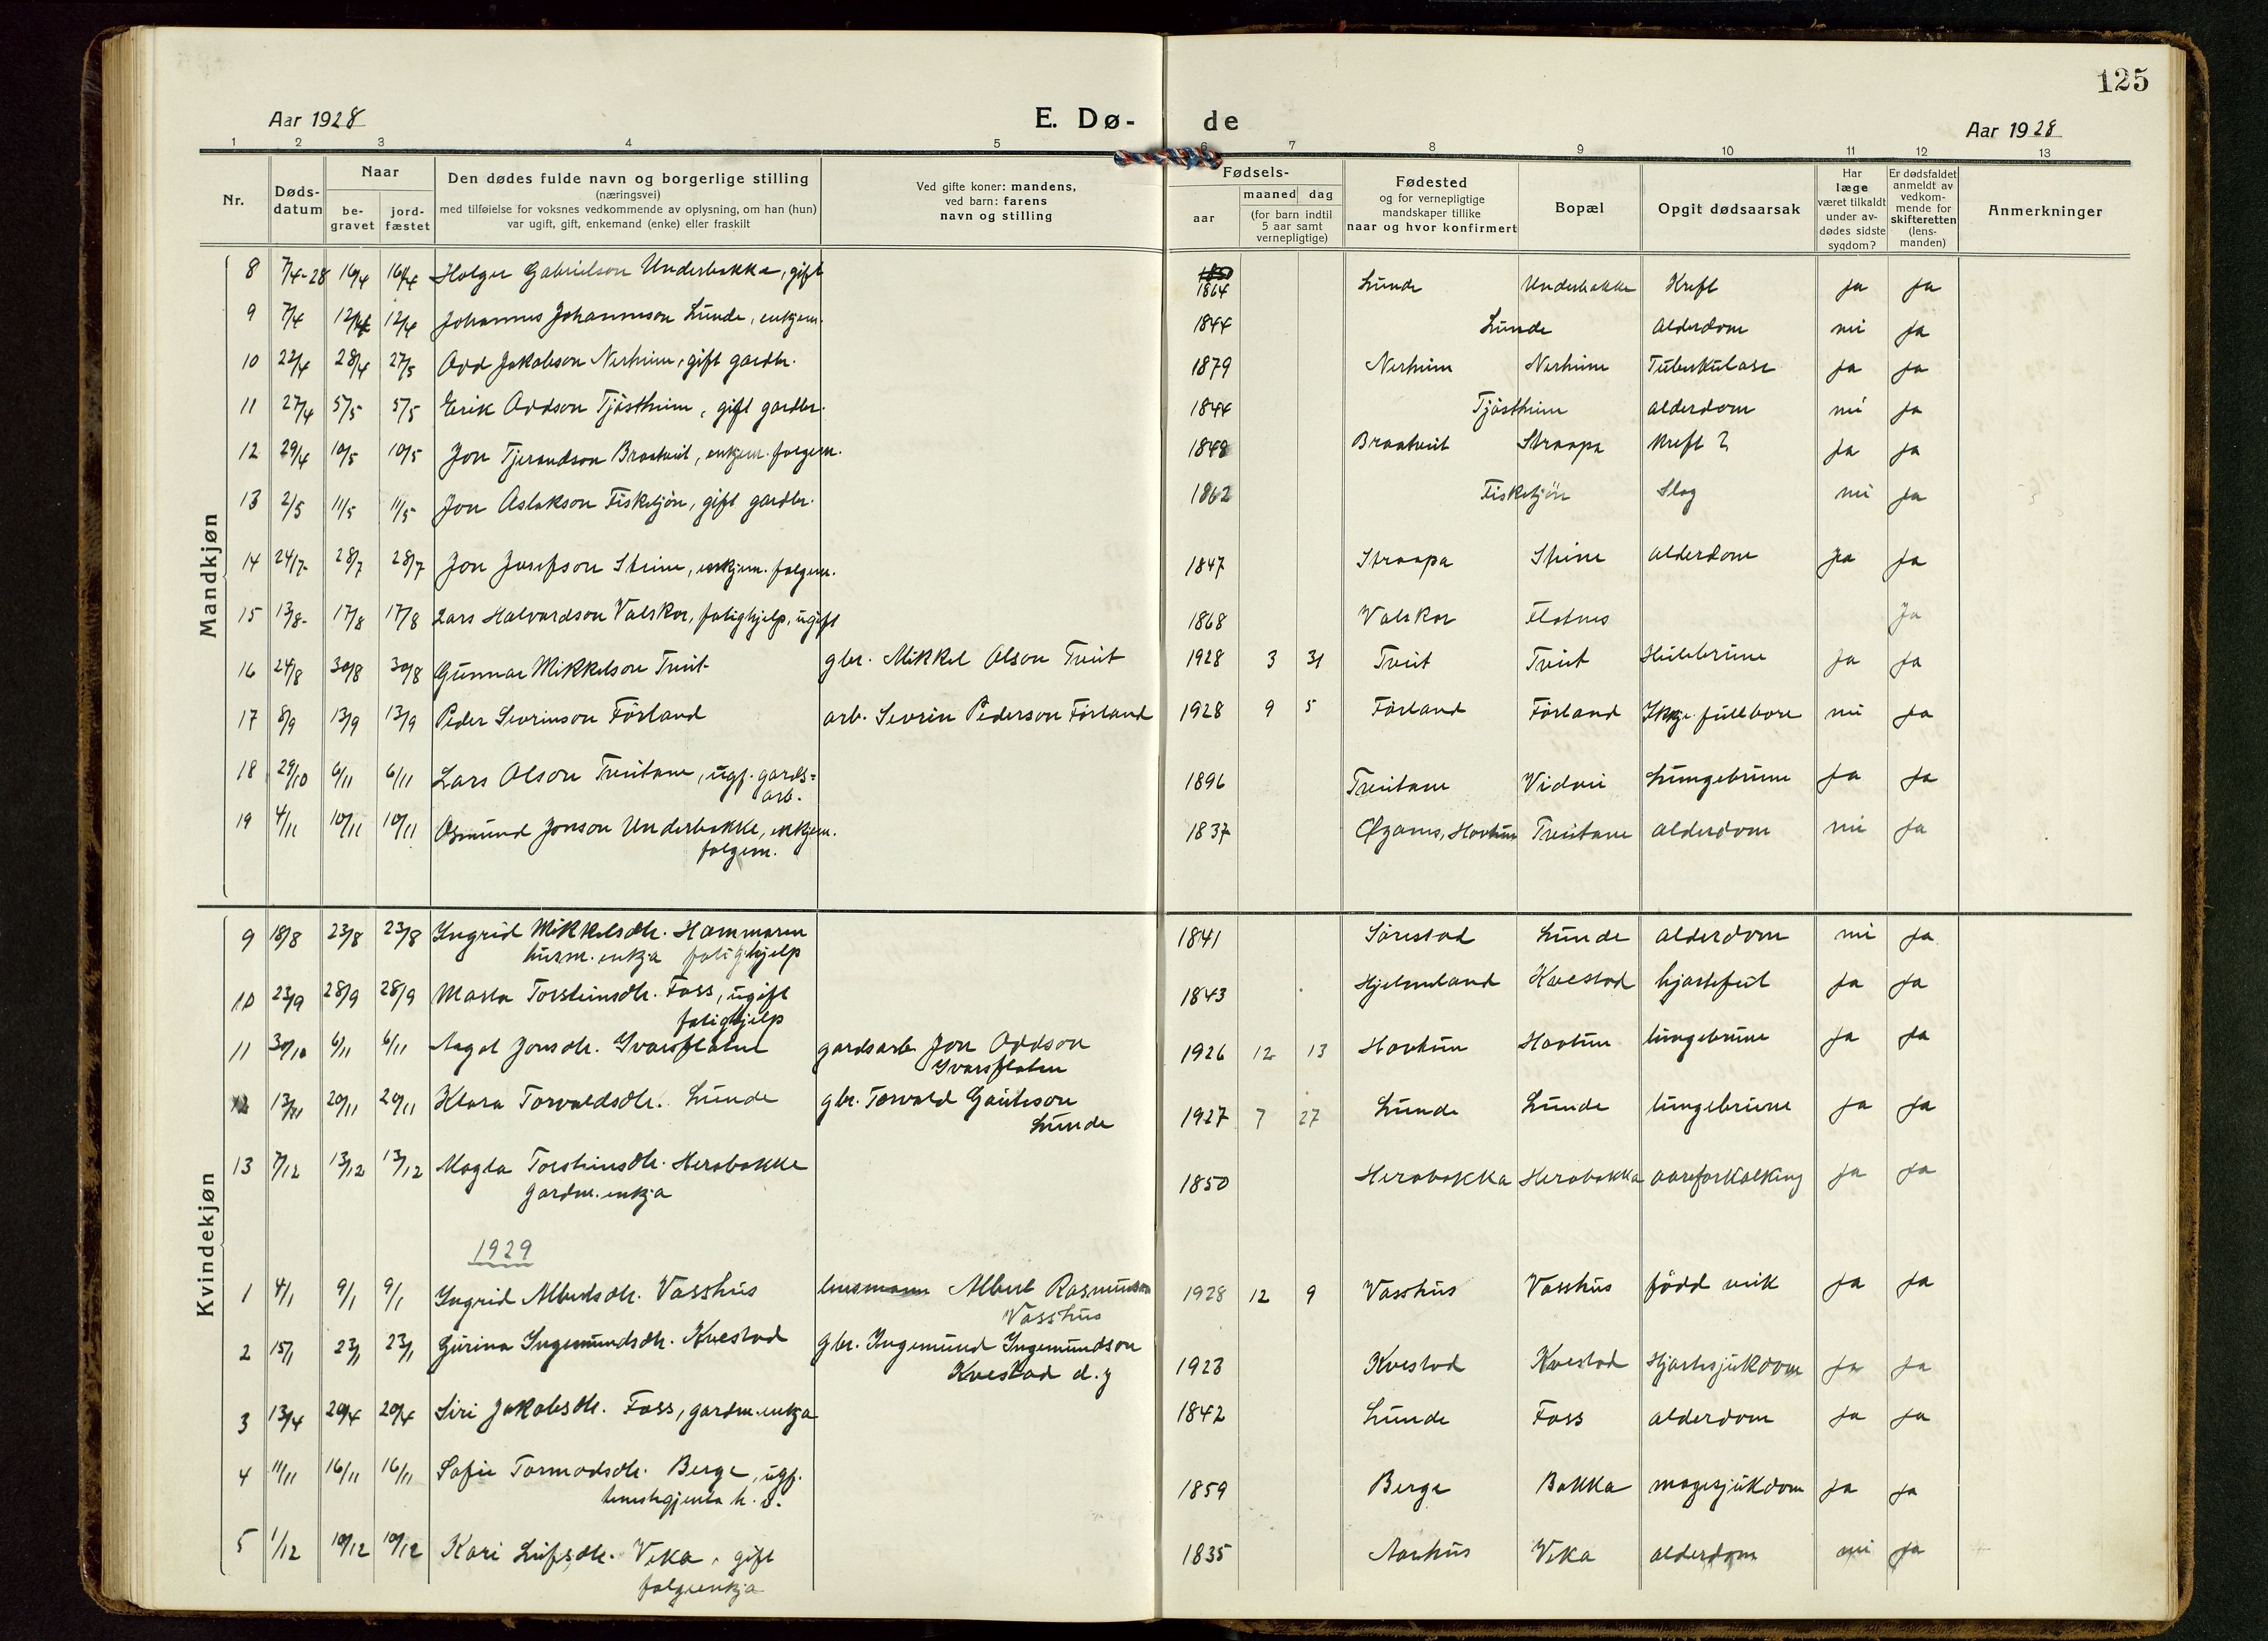 125
Aar 1928
E. Dø-
de
Aar 1928
1 2 3 4 5 6 7 8 9 10 11 12 13
Nr.
Døds-
datum
Naar
be-
gravet
jord-
fæstet
Den dødes fulde navn og borgerlige stilling
(næringsvei)
med tilføielse for voksnes vedkommende av oplysning, om han (hun)
var ugift, gift, enkemand (enke) eller fraskilt
Ved gifte koner: mandens,
ved barn: farens
navn og stilling
Fødsels-
aar
maaned dag
(for barn indtil
5 aar samt
vernepligtige)
Fødested
og for vernepligtige
mandskaper tillike
naar og hvor konfirmert
Bopæl
Opgit dødsaarsak
Har
læge
været tilkaldt
under av-
dødes sidste
sygdom?
Er dødsfaldet
anmeldt av
vedkom-
mende for
skifteretten
(lens-
manden)
Anmerkninger
Mandkjøn
8 7/4-28 16/4 16/4 Holger Gabrielson Underbakka, gift 1850 1864 Lunde Underbakke Kreft ja ja
9 7/4 12/4 12/4 Johannes Johanneson Lunde, enkjem. 1844 Lunde alderdom nei ja
10 22/4 28/4 27/5 Odd Jakobson Nerheim, gift gardbr. 1879 Nerheim Nerheim Tuberkulose ja ja
11 27/4 5/5 5/5 Erik Oddson Tjøstheim, gift gardbr. 1844 Tjøstheim alderdom nei ja
12 29/4 10/5 10/5 Jon Tjerandson Braatveit, enkjem. folgem. 1848 Braatveit Straapa kreft? ja ja
13 2/5 11/5 11/5 Jon Aslakson Fisketjøn, gift gardbr. 1862 Fisketjøn Slag nei ja
14 24/7 28/7 28/7 Jon Josefson Steine, enkjem. folgem. 1847 Straapa Steine alderdom ja ja
15 13/8- 17/8 17/8 Lars Halvardson Valskor, fatighjelp, ugift 1868 Valskor Flotnes Ja
16 24/8 30/8 30/8 Gunnar Mikkelson Tveit gbr. Mikkel Olson Tveit 1928 3 31 Tveit Tveit Heilebrune ja ja
17 8/9 13/9 13/9 Peder Sevrinson Førland arb. Sevrin Pederson Førland 1928 9 5 Førland Førland Ikkje fullbore nei ja
18 29/10 6/11 6/11 Lars Olson Tveitane, ugf. gards=
arb. 1896 Tveitane Vidvei Lungebrune ja ja
19 4/11 10/11 10/11 Osmund Jonson Underbakke, enkjem.
folgem. 1837 Øgams, Hovtun Tveitane alderdom nei ja
Kvindekjøn
9 18/8 23/8 23/8 Ingrid Mikkelsdtr. Hammaren
husm. enkja fatighjelp 1841 Sørestad Lunde alderdom nei ja
10 23/9 28/9 28/9 Marta Torsteinsdtr. Foss, ugift
fatighjelp 1843 Hjelmeland Kvestad hjartefeil ja ja
11 30/10 6/11 6/11 Aagot Jonsdtr. Ivarsflaten gardsarb Jon Oddson
Ivarsflaten 1926 12 13 Hovtun Hovtun lungebrune ja ja
12 13/11 20/11 20/11 Klara Torvaldsdtr. Lunde gbr. Torvald Gauteson
Lunde 1927 7 27 Lunde Lunde lungebrune ja ja
13 7/12 13/12 13/12 Magla Torsteinsdtr. Herabakke
gardm. enkja 1850 Herabakka Herabakka aareforkalking ja ja
1929
1 4/1 9/1 9/1 Ingrid Albertsdtr. Vasshus lensmann Albert Rasmusson
Vasshus 1928 12 9 Vasshus Vasshus fødd veik ja ja
2 15/1 23/1 23/1 Gurina Ingemundsdtr. Kvestad gbr. Ingemund Ingemundson
Kvestad d.y 1923 Kvestad Kvestad Hjartesjukdom ja ja
3 13/4 20/4 20/4 Siri Jakobsdtr. Foss, gardm. enkja 1842 Lunde Foss alderdom ja ja
4 11/11 16/11 16/11 Sofie Tormodsdtr. Berge, ugf.
tenestegjenta 1859 Berge Bakka magesjukdom ja ja
5 1/12 10/12 10/12 Kari Leifsdtr. Veka, gift
folgeenkja 1835 Aarhus Veka alderdom nei ja